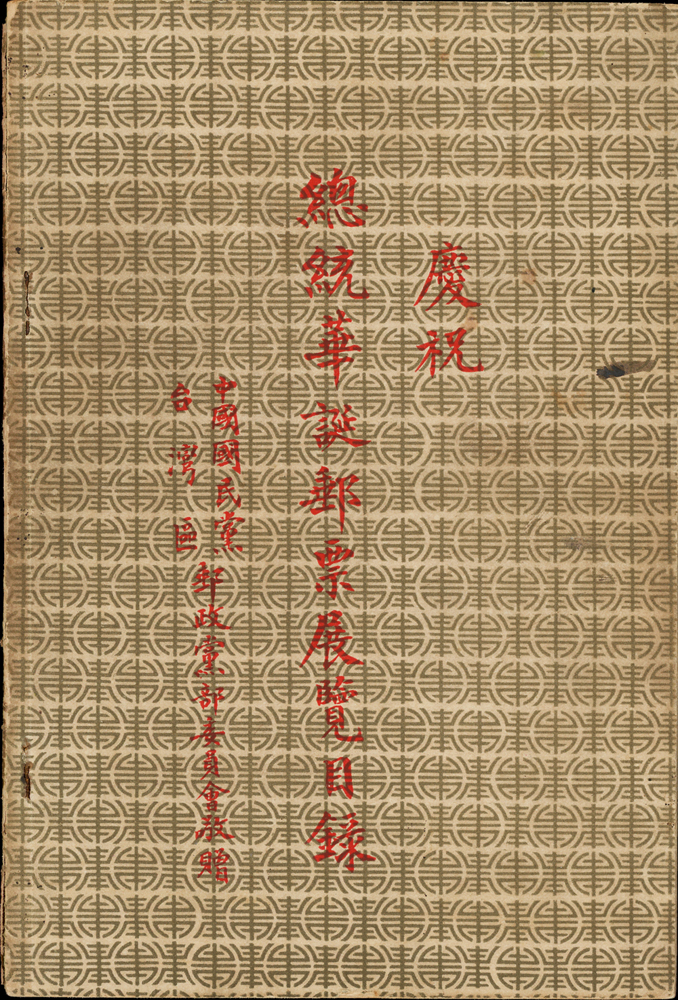 慶祝
總統華誕郵票展覽目錄
中國國民黨
台灣區
郵政黨部委員會敬贈